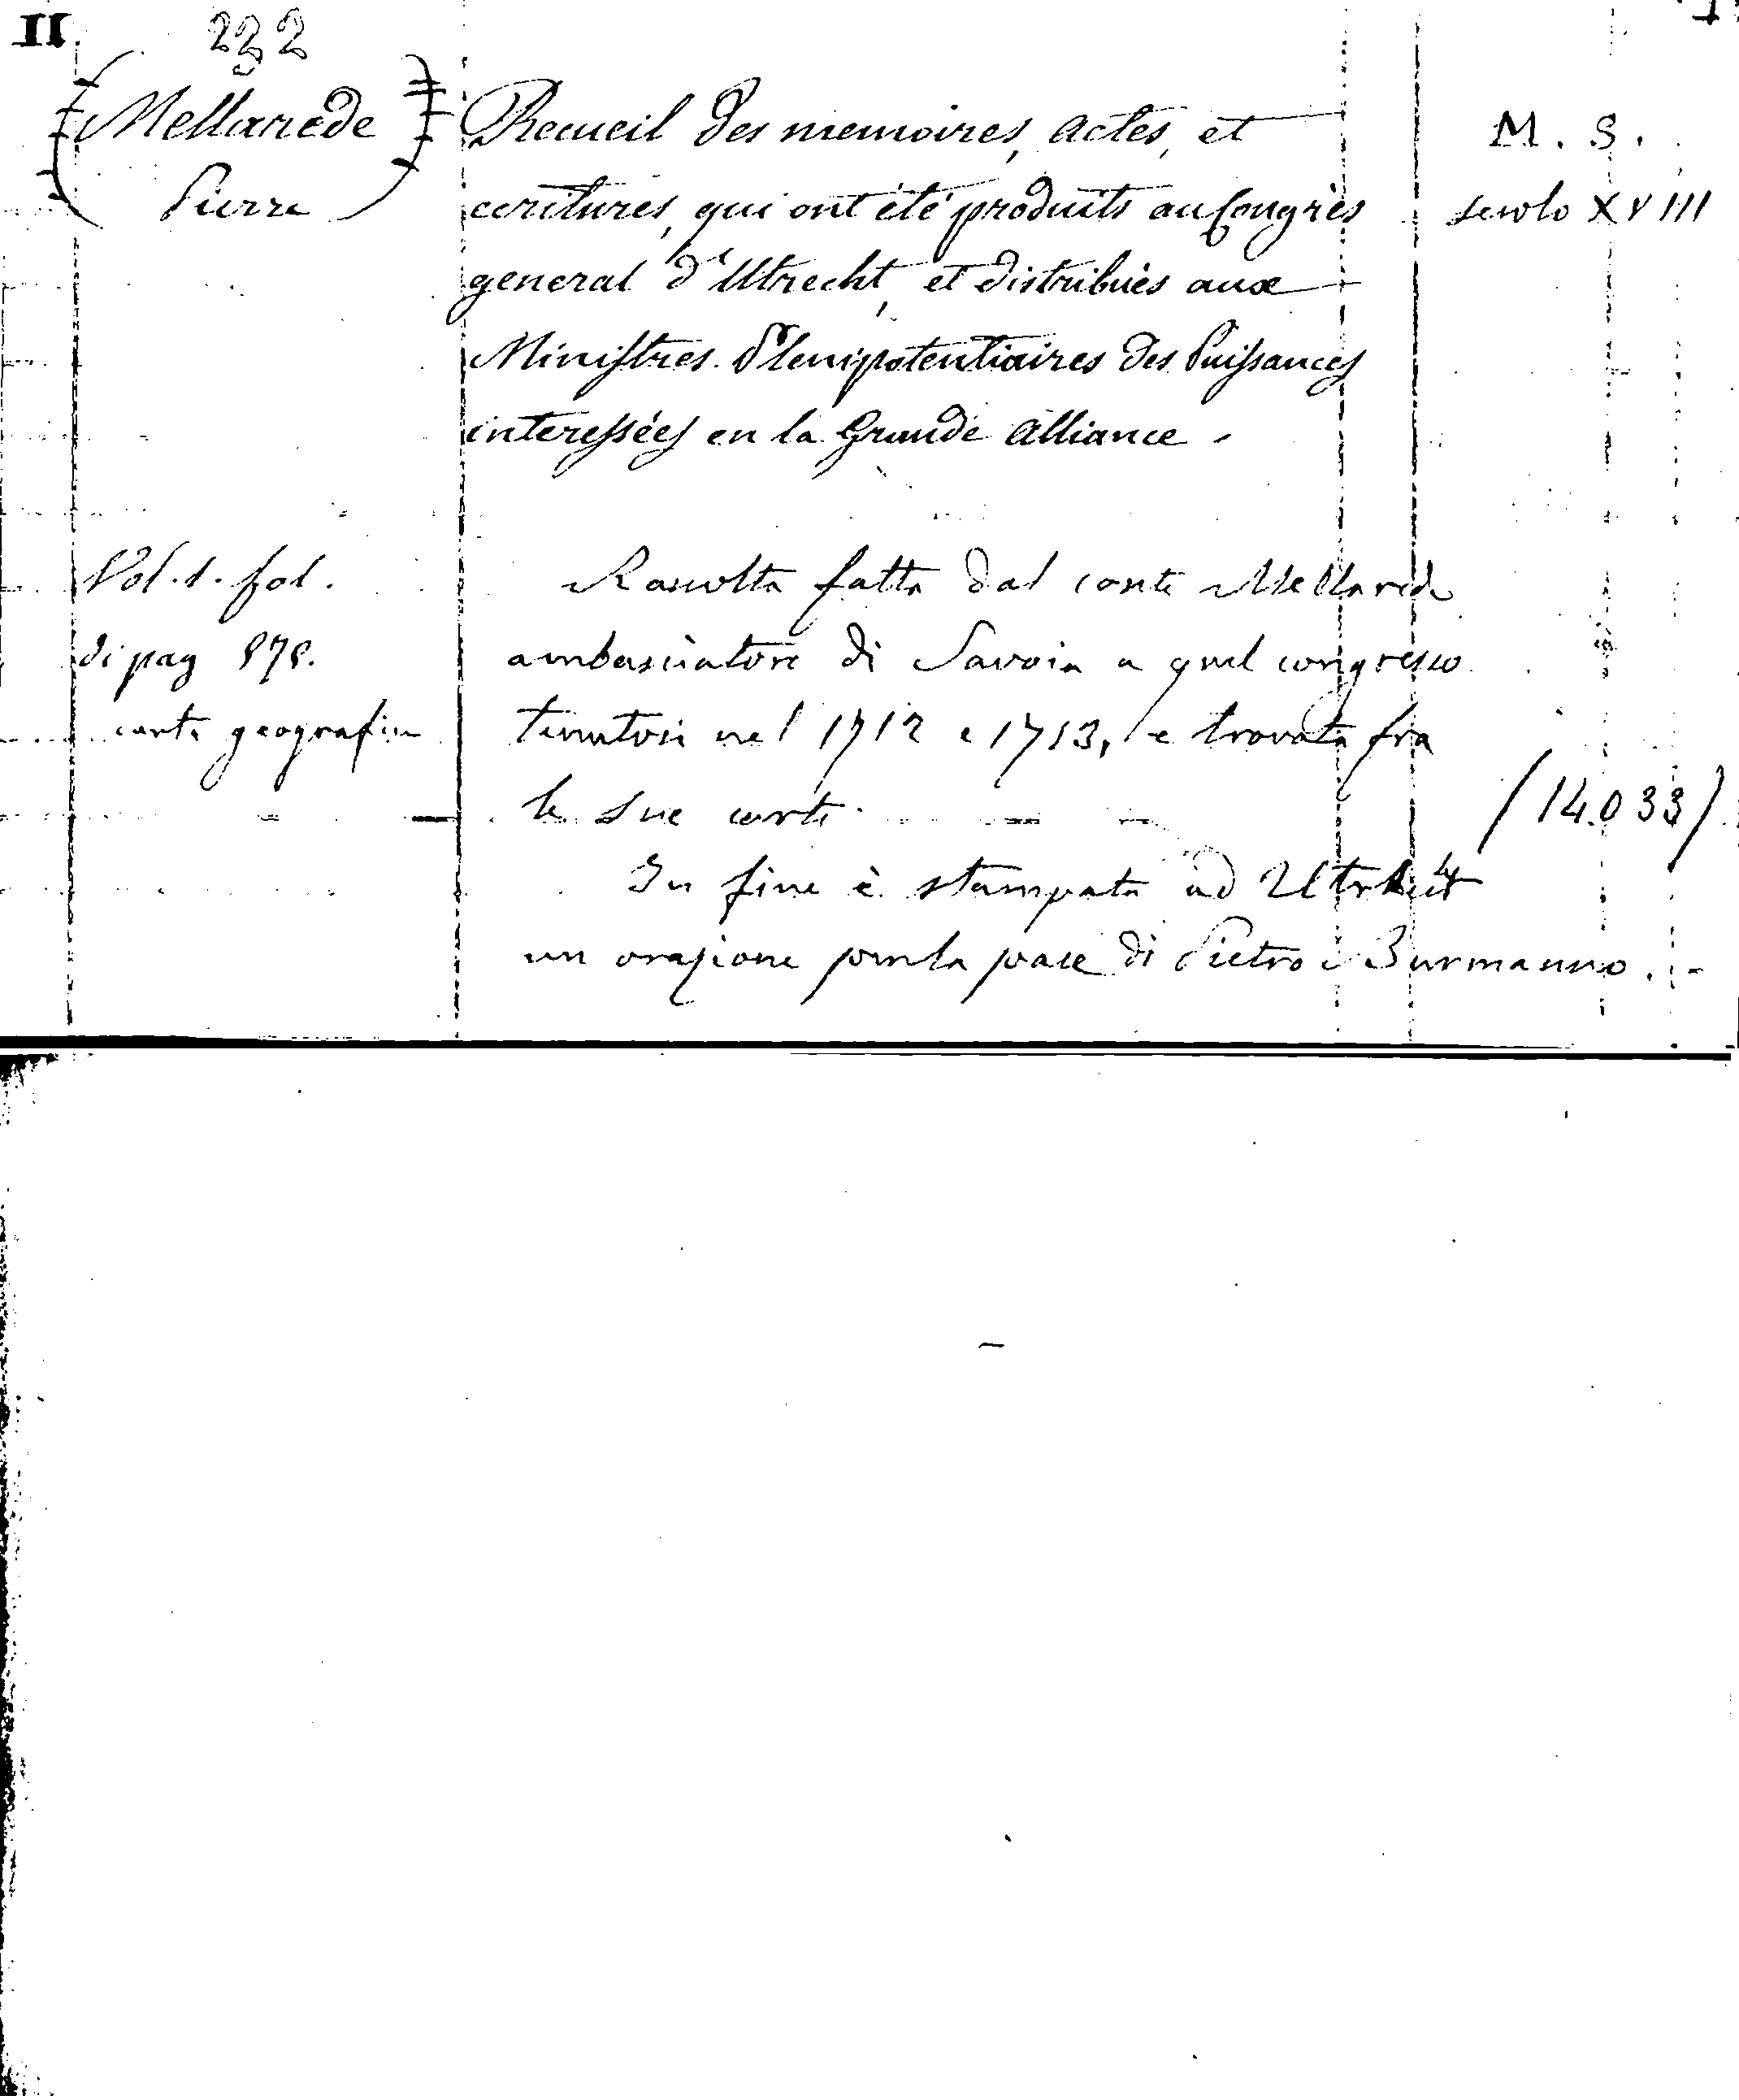 II 232
(Mellarede)
Pierre
Recueil des memoires, actes, et
ecritures, qui ont été produits au Congrès
general d'Utrecht, et distribués aux
Ministres Plenipotentiaires des Puissances
interessées en la Grande Alliance.
M. S.
secolo XVIII
Vol. 1. fol.
di pag 878.
carte geografiche
Raccolta fatta dal conte Mellarede
ambasciatore di Savoia a quel congresso
tenutosi nel 1712 e 1713, e trovata fra
le sue carte.
(14.033)
In fine è stampata ad
un orazione per la pace di Pietro Burmanno.